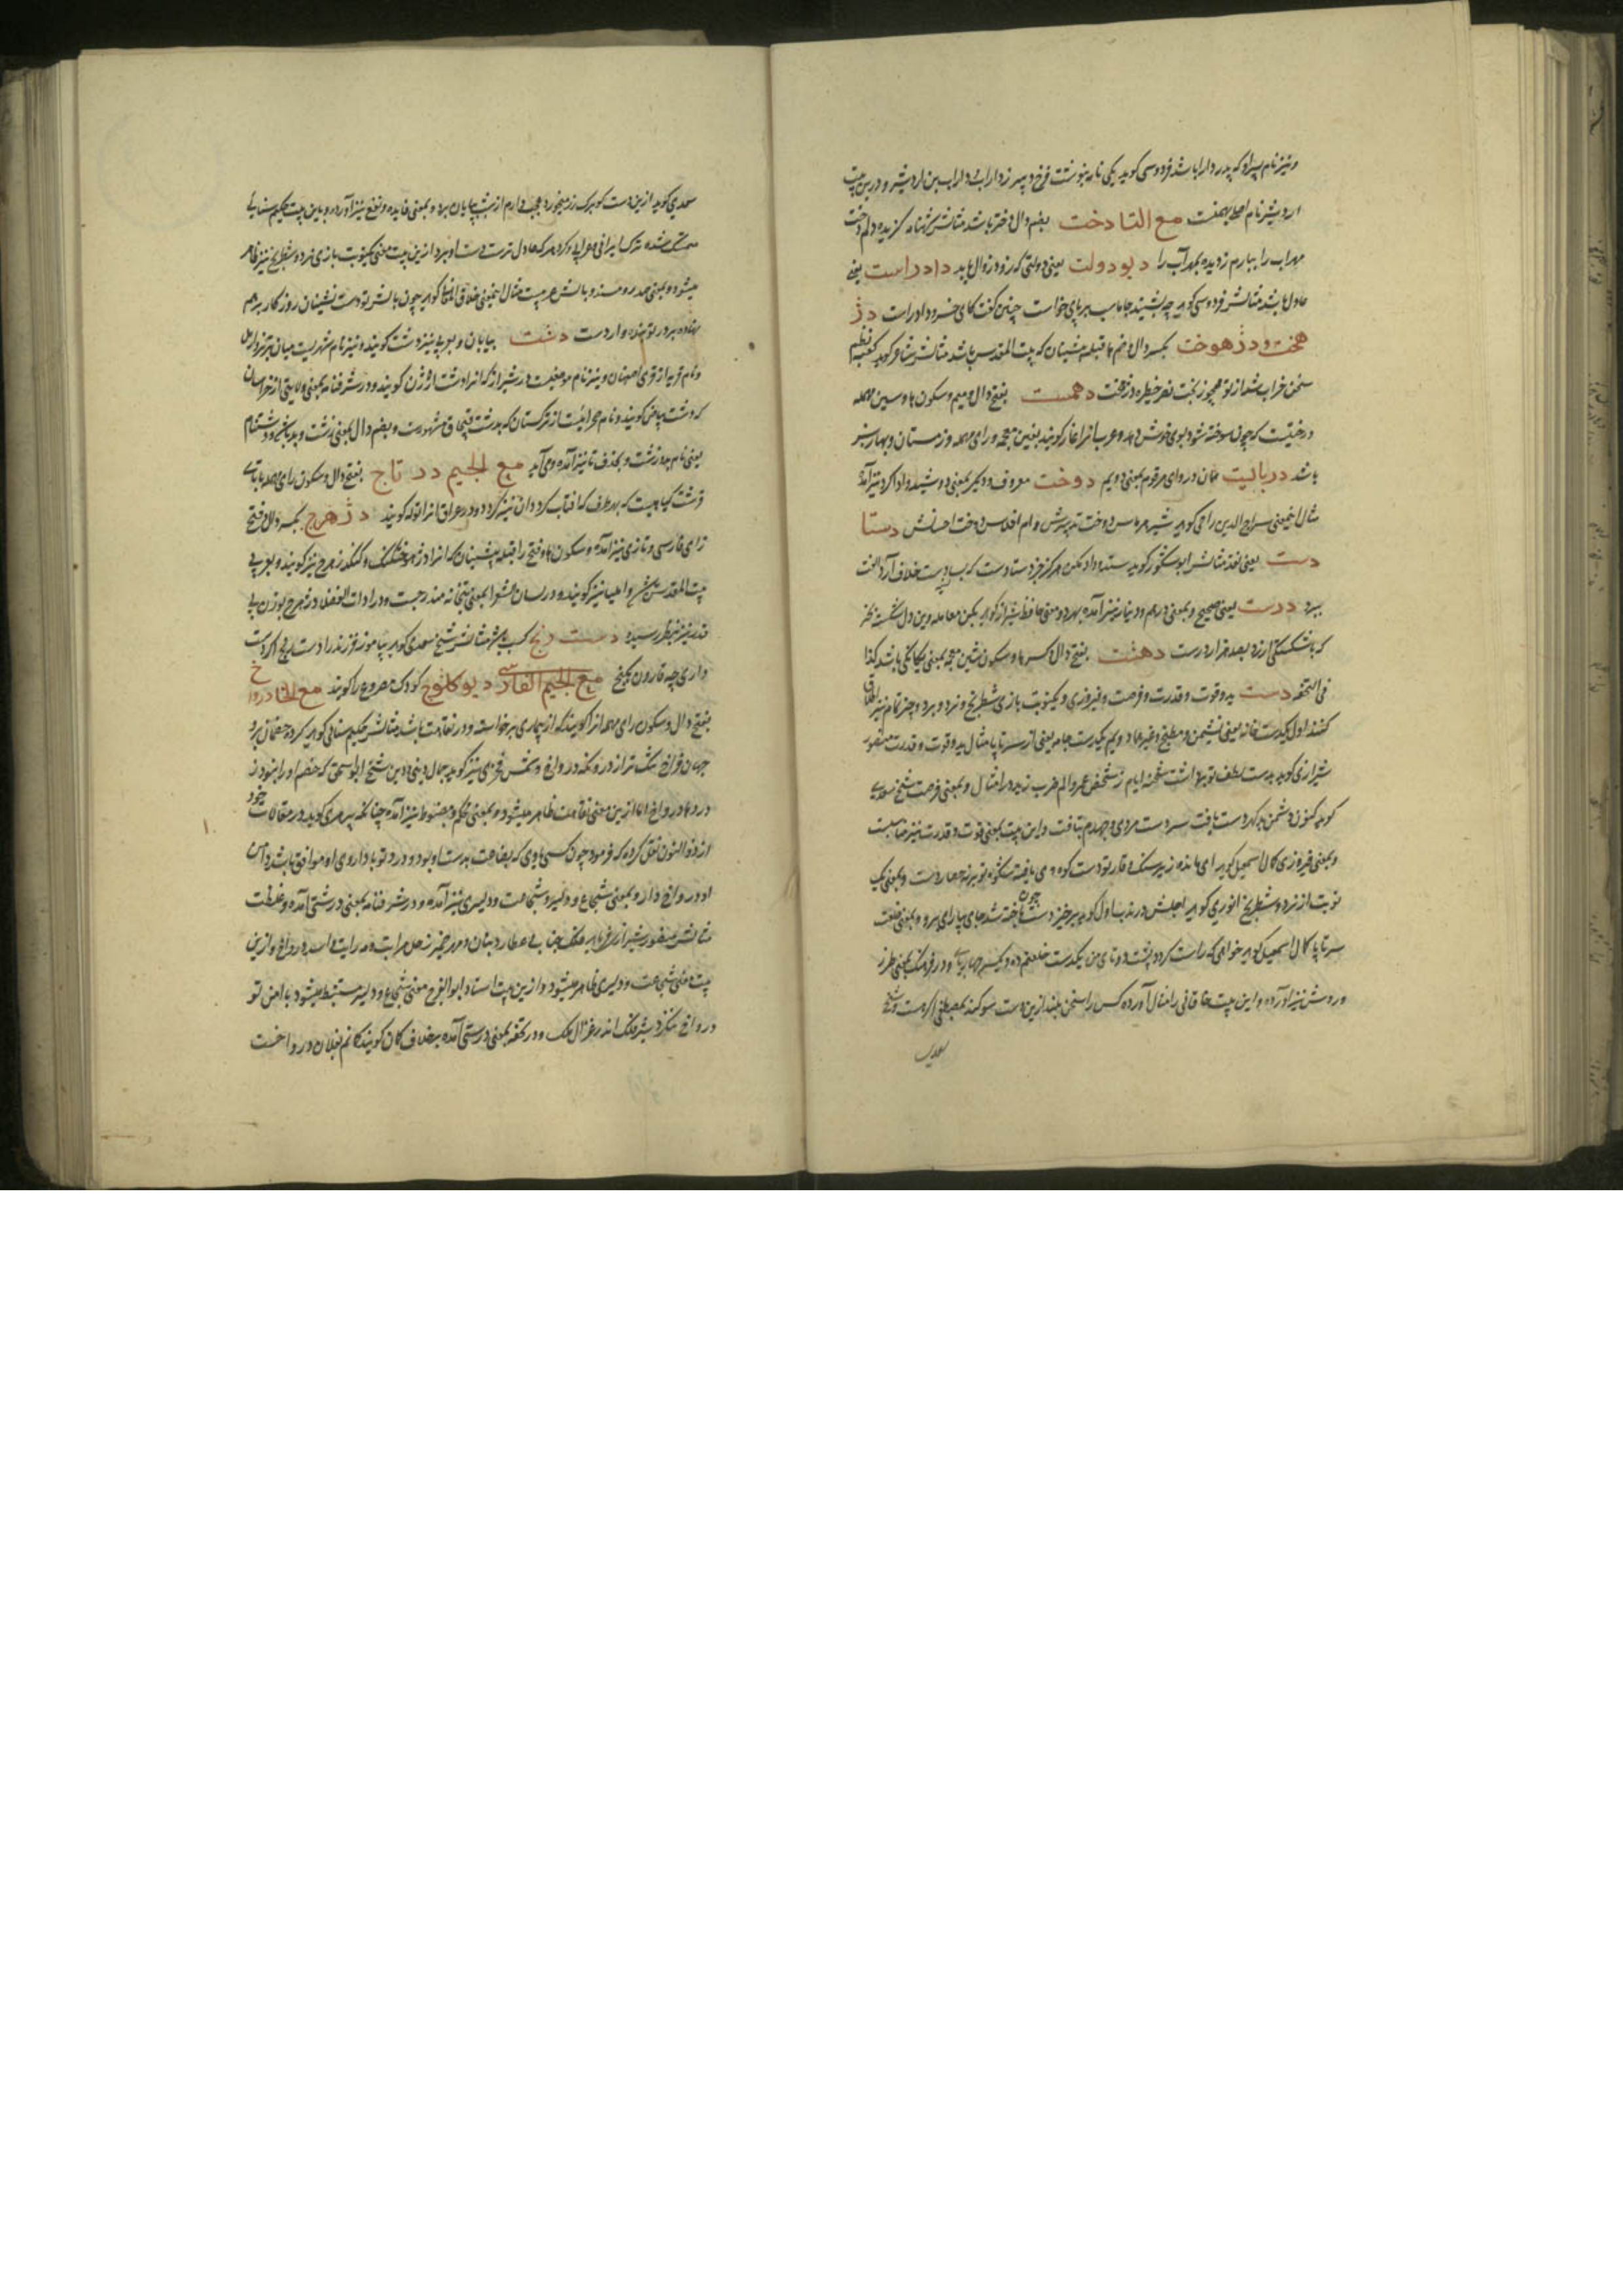 و نیز نام پسر او که پدر دارا باشد فردوسی کوید یکی نامه بنوشت فرخ دبیر ز داراب داراب بن اردشیر و درین بیت
اردشیر نام بهمنست مع التا دخت بضم دال دختر باشد مثالش شهنامه کزیده دلم دخت
مهراب را ببارم ز دیده بمهر آب را دیو دولت یعنی دولتی که زود زوال یابد داد راست یعنی
عادل باشد مثالش فردوسی کوید چه بشنید جاماسب بر پای خواست چنین گفت کای خسرو داد راست دژ
هخت و دژ هوخت بکسر دال و ضم ها قبله پیشینیان که بیت المقدس باشد مثالش شاعر کوید کعبه نظم
سخن خراب شد از تو همچو ز بخت نصر خطیره دژهخت دهمست بفتح دال و میم و سکون ها و سین مهمله
درختیست که چون سوخته شود بوی خوش دهد و عرب آنرا غار کویند بغین معجمه و رای مهمله و زمستان و بهار سبز
باشد دربالیت همان در روای مرقوم بمعنی دویم دوخت معروف و دیکر بمعنی دوشید و ادا کرد نیز آمده
مثال این معنی سراج الدین راجی کوید شیر هر ماس دوخت تدبیرش وام افلاس دوخت احسانش دستا
دست یعنی نقد مثالش ابوشکور کوید ستد و داد مکن هرکز جز دستادست که پسادست خلاف آرد و الفت
ببرد درست یعنی صحیح و بمعنی درهم و دینار نیز آمده بهر دو معنی حافظ شیراز کوید بکن معامله وین دل شکسته بخر
که با شکستکی ارزد بصد هزار درست دهشت بفتح دال و کسر ها و سکون شین معجمه بمعنی یکانکی باشد کذا
فی التحفه دست ید و قوت و قدرت و فرصت و فیروزی و یکنوبت بازی شطرنج و نرد و برد و چیز تمام نیز اطلاق
کنند اول یکدست خانه یعنی نشیمن و مطبخ و غیرها دویم یکدست جامه یعنی از سر تا پا مثال ید و قوت و قدرت منصور
شیرازی کوید بدست لطف تو برداشت شحنه ایام ز شخص عمرو الم ضرب زید در امثال و بمعنی فرصت شیخ سعدی
کوید کنون دشمن بدکهر دست یافت سر دست مردی و جهدم بتافت و این بیت بمعنی قوت و قدرت نیز مناسبست
و بمعنی فیروزی کمال اسمعیل کوید ای مانده زیر سنک وقار تو دست کوه وی یافته شکوه تو بر نه حصار دست و بمعنی یک
نوبت از نرد و شطرنج انوری کوید اجلش در ندب اول کوید برخیز دست چون باخته شد جای بپا رای مرو و بمعنی خلعت
سر تا پا کمال اسمعیل کوید خواهی که راست کردد پشت دو تای من یکدست خلعتم ده و یکسر چهارپای و در فرهنک بمعنی طرز
و روش نیز آورده و این بیت خاقانی را مثال آورده کس را سخن بلند ازین دست سوکند بمصطفی اکر هست و شیخ
سعدی
سعدی کوید ازین دست کو برک رز میخورد عجب دارم ار شب بپایان برد و بمعنی فایده و نفع نیز آورده و باین بیت حکیم سنایی
متمسک شده
میشود و بمعنی صدر و مسند و بالش
نهاده بر در تو بنده وار دست دشت بیابان و بعربی نیز دشت کویند و نیز نام شهریست میان تبریز و اربل
و نام قریه از قرای اصفهان و نیز نام موضعیست در شیراز که آنرا دشت ارژن کویند و در شرفنامه بمعنی ولایتی از خراسان
که دشت بیاض کویند و نام صحرائیست از ترکستان که بدشت قپچاق مشهورست و بضم دال بمعنی زشت و بد بنابرین دشنام
یعنی نام بد و زشت و بحذف تا نیز آمده وی آید مع الجیم در تاج بفتح دال و سکون رای مهمله با تای
قرشت کیاهیست که بهر طرف که آفتاب کردد آن نیز کردد و در عراق آنرا توله کویند دژهرج بکسر دال و فتح
زای فارسی و تازی نیز آمده و سکون ها و فتح را قبله پیشینیان که آنرا دژهوخت کنک و کنکدژهرج نیز کویند و بعربی
بیت المقدس و ایلیا نیز کویند و در لسان الشعرا بمعنی بتخانه هند رجست و در ادات الفضلا دژهرج بوزن بی
قدر نیز بنظر رسیده دست رنج کسب و هنر مثالش شیخ سعدی کوید بیاموز فرزند را دست رنج اکر دست
داری چه قارون بکنج مع الجیم الفارسی دیو کلوچ کودک مصروع را کویند مع الخا درواخ
بفتح دال و سکون رای مهمله آنرا کویند که از بیماری برخاسته و در نقاهت باشد مثالش حکیم سنائی کوید کرده خصمان برو
جهان فراخ تنک تر از درونه درواخ و شمس فخری نیز کوید جمال دینی و دین شیخ ابواسحق که خصم او را نبود ز
درد ها درواخ اما ازین معنی نقاهت ظاهر میشود و بمعنی محکم و مضبوط نیز آمده چنانکه پیر هری کوید در مقامات خود
از ذوالنون نقل کرده که فرمود چون کسی یابی که بضاعت بدست او بود و درد تو با داروی او موافق باشد دامن
او درواخ دار و بمعنی شجاع و دلیر و شجاعت و دلیری نیز آمده و در شرفنامه بمعنی درشتی آمده و غلظت
مثالش منصور شیرازی فرماید
بیت معنی شجاعت و دلیری ظاهر میشود و ازین بیت استاد ابوالفرج معنی شجاع و دلیر مستنبط میشود با امن تو
درواخ نکرد شیر فلک اندر غزال ملک و در تحفه بمعنی درستی آمده بخلاف کمان کویند کمانم بفلان درواخست